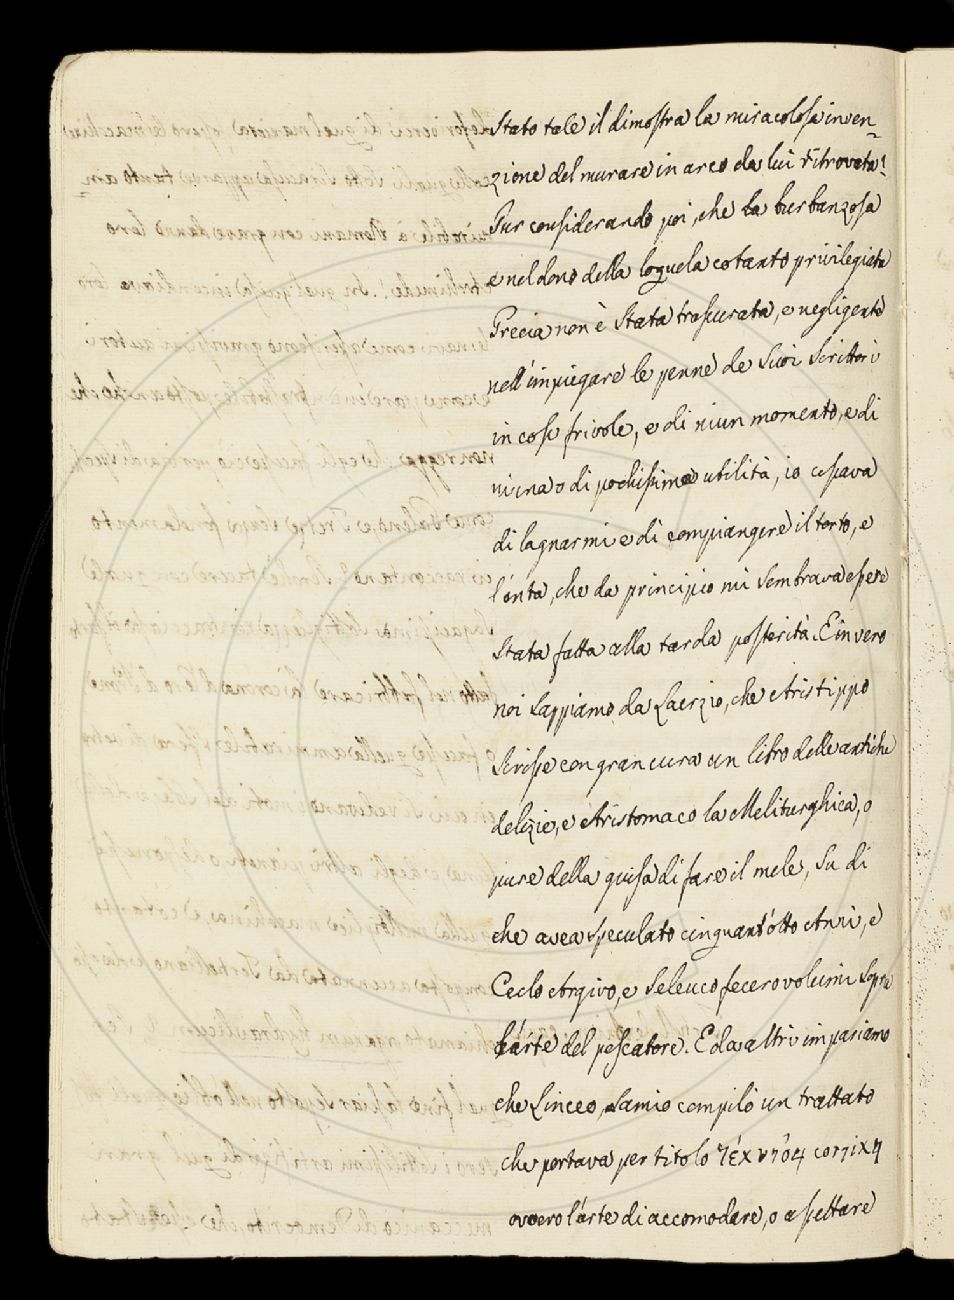 Stato tale il dimostra la miracolosa inven=
zione del murare in arco da lui ritrovata!
Pur considerando poi, che la burbanzosa
e nel dono della loquela cotanto privilegiata
Grecia non è Stata trascurata, e negligente
nell'impiegare le penne de Suoi Scrittori
in cose frivole, e di niun momento, e di
niuna o di pochissima utilità, io cessava
di lagnarmi e di compiangere il torto, e
l'onta, che da principio mi Sembrava essere
Stata fatta alla tarda posterità. E in vero
noi Sappiamo da Laerzio, che Aristippo
Scrisse con gran cura un libro delle antiche
delizie, e Aristomaco la Meliturghica, o
pure della guisa di fare il mele, Su di
che avea speculato cinquant'otto Anni, e
Ceclo Argivo, e Seleuco fecero volumi Sopra
l'arte del pescatore. E da altri impariamo
che Linceo Samio compilò un trattato
che portava per titolo
ovvero l'arte di accomodare, o aspettare